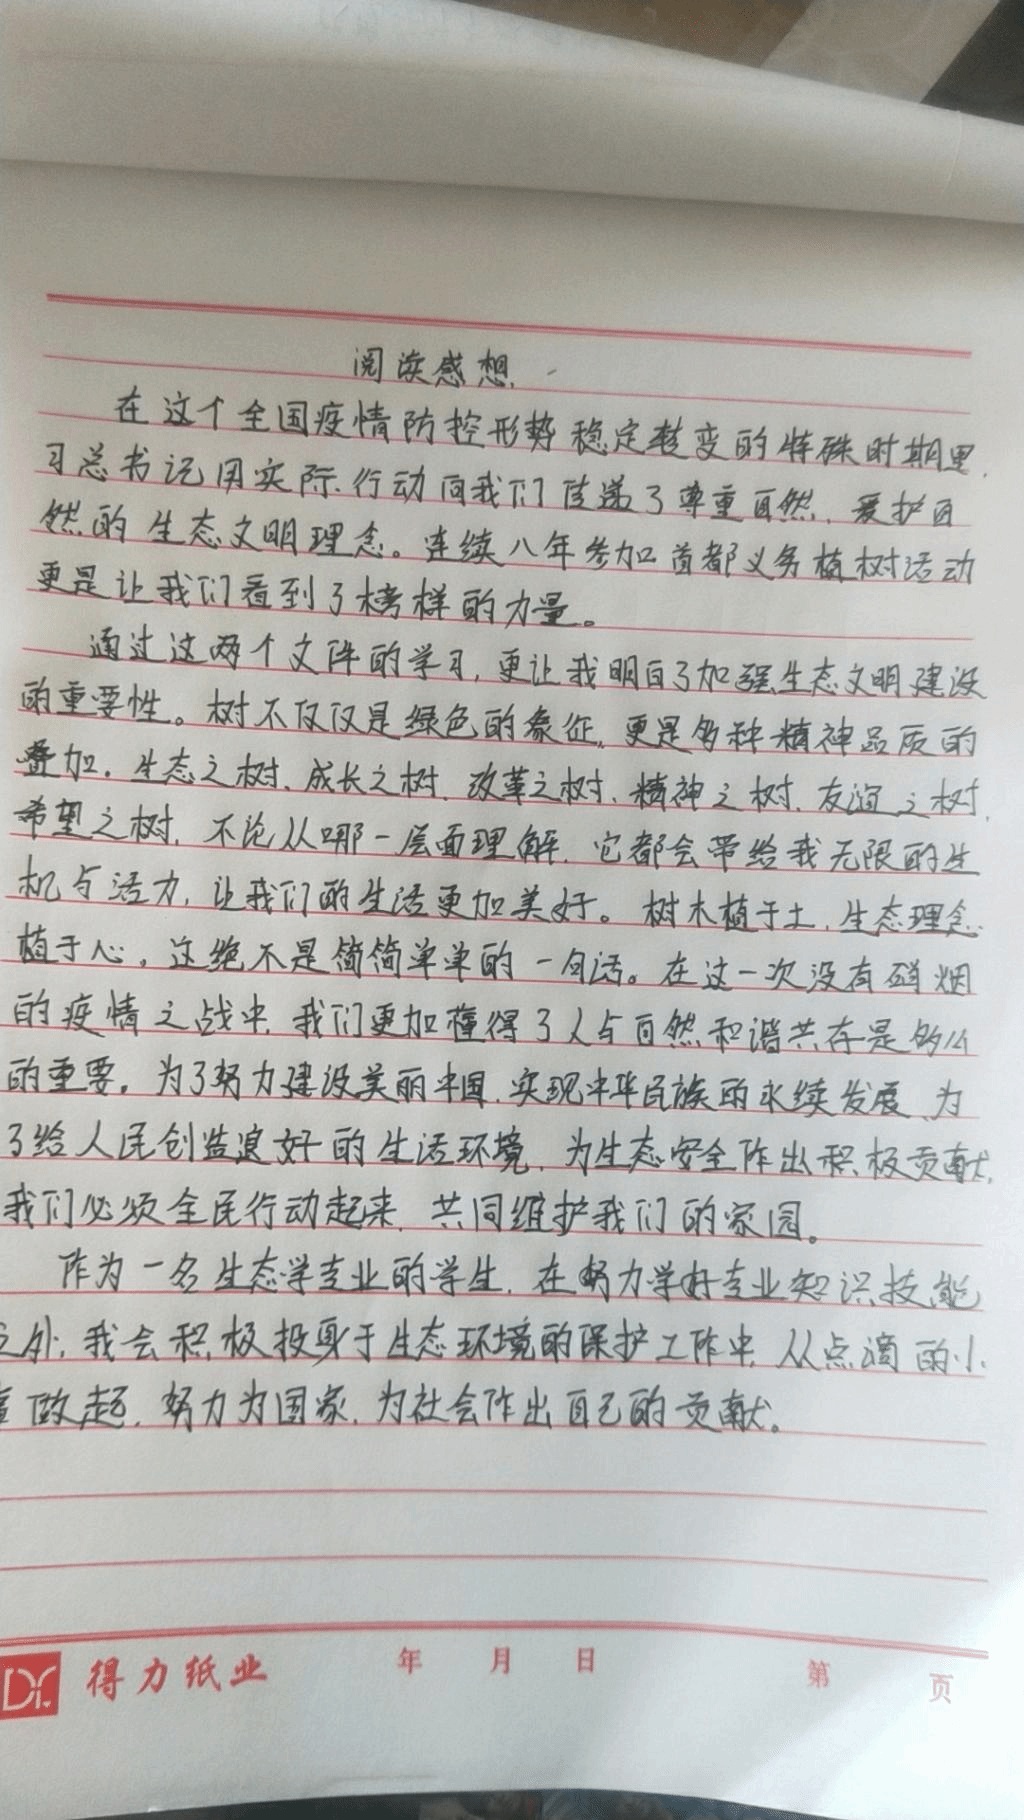 阅读感想
在这个全国疫情防控形势稳定转变的特殊时期里,
习总书记用实际行动向我们传递了尊重自然、爱护自
然的生态文明理念。连续八年参加首都义务植树活动
更是让我们看到了榜样的力量。
通过这两个文件的学习,更让我明白了加强生态文明建设
的重要性。树不仅仅是绿色的象征,更是多种精神品质的
叠加。生态之树、成长之树、改革之树、精神之树、友谊之树、
希望之树,不论从哪一层面理解,它都会带给我无限的生
机与活力,让我们的生活更加美好。树木植于土,生态理念
植于心,这绝不是简简单单的一句话。在这一次没有硝烟
的疫情之战中,我们更加懂得了人与自然和谐共存是多么
的重要。为了努力建设美丽中国,实现中华民族的永续发展、为
了给人民创造良好的生活环境,为生态安全作出积极贡献,
我们必须全民行动起来,共同维护我们的家园。
作为一名生态学专业的学生,在努力学好专业知识技能
之外,我会积极投身于生态环境的保护工作中,从点滴的小
做起,努力为国家,为社会作出自己的贡献。
Dr. 得力纸业 年 月 日 第 页